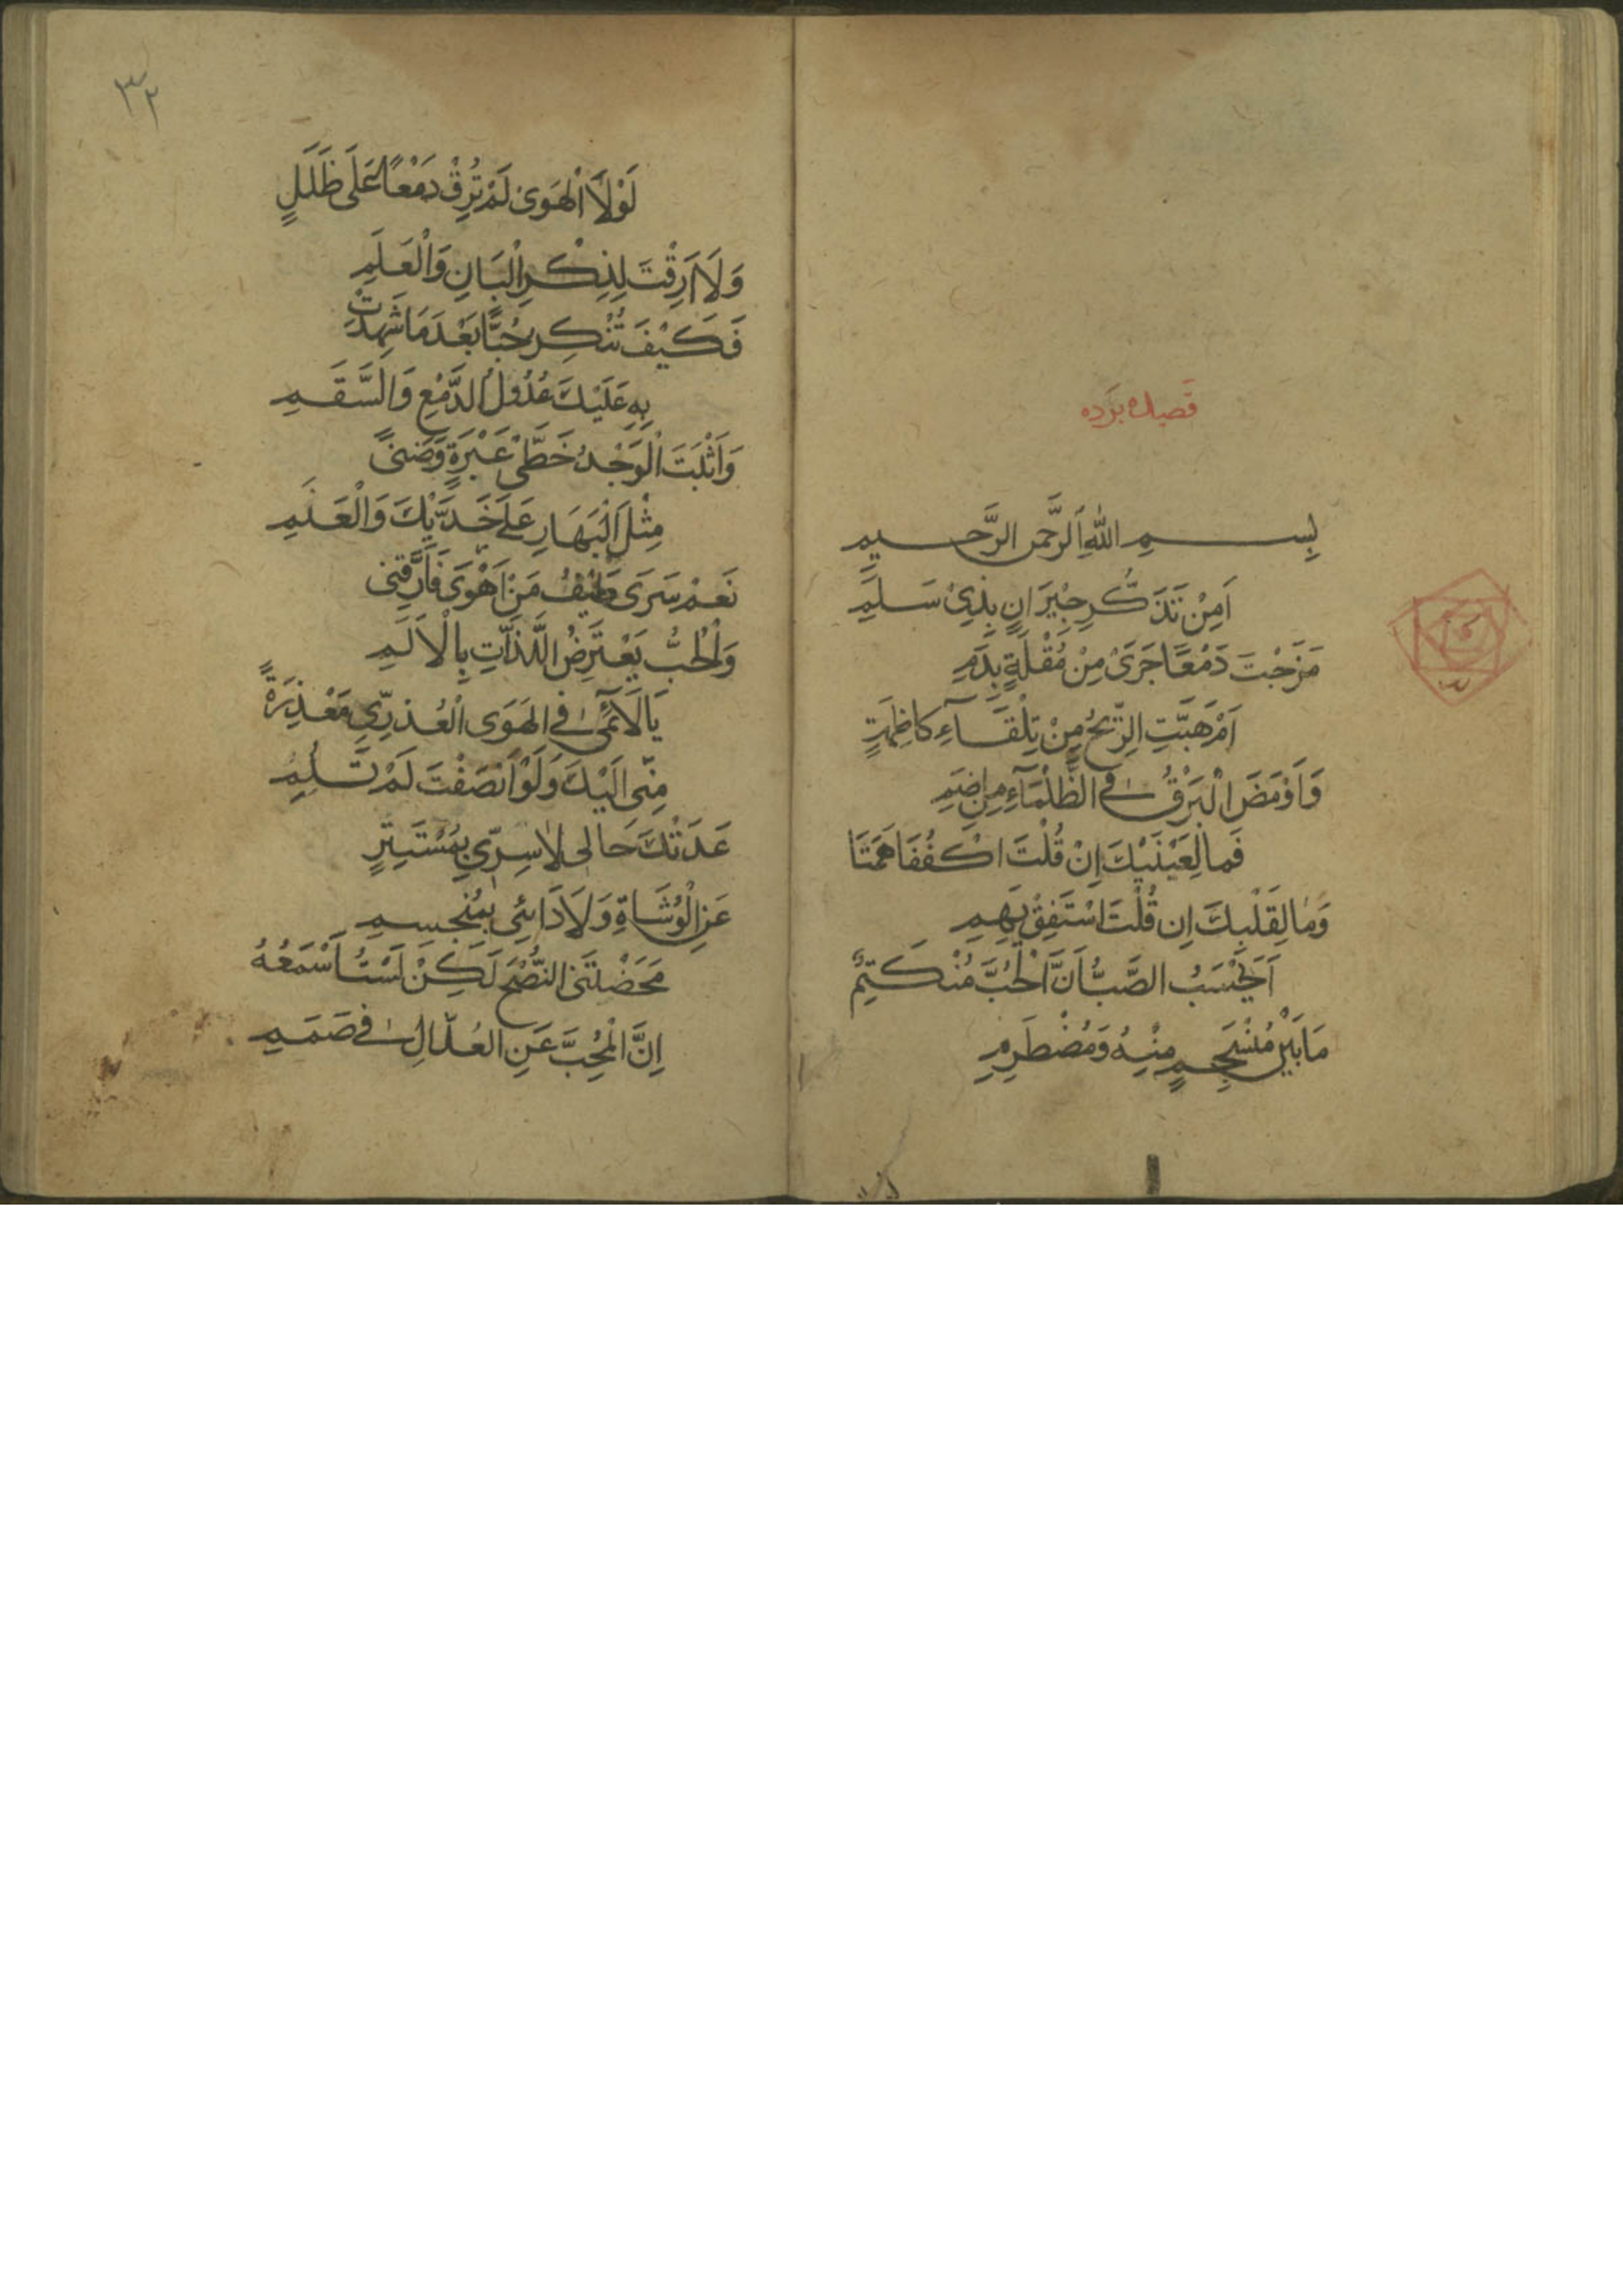 قصيده برده
بِسْمِ اللهِ الرَّحْمنِ الرَّحِيمِ
اَمِنْ تَذَكُّرِ جِيْرَانٍ بِذِىْ سَلَمِ
مَزَجْتَ دَمْعًا جَرَىْ مِنْ مُقْلَةٍ بِدَمِ
اَمْ هَبَّتِ الرِّيْحُ مِنْ تِلْقَآءِ كاظِمَةٍ
وَاَوْمَضَ الْبَرْقُ فِى الظَّلْمَآءِ مِنْ اِضَمِ
فَمَا لِعَيْنَيْكَ اِنْ قُلْتَ اكْفُفَا هَمَتَا
وَمَا لِقَلْبِكَ اِن قُلْتَ اسْتَفِقْ يَهِمِ
اَيَحْسَبُ الصَّبُّ اَنَّ الْحُبَّ مُنْكَتِمٌ
مَا بَيْنَ مُنْسَجِمٍ مِنْهُ وَمُضْطَرِمِ
٣٢
لَوْلَا الْهَوَىْ لَمْ تُرِقْ دَمْعًا عَلَى طَلَلٍ
وَلَا اَرِقْتَ لِذِكْرِ الْبَانِ وَالْعَلَمِ
فَكَيْفَ تُنْكِرُ حُبًّا بَعْدَ مَا شَهِدَتْ
بِهِ عَلَيْكَ عُدُولُ الدَّمْعِ وَالسَّقَمِ
وَاَثْبَتَ الْوَجْدُ خَطَّىْ عَبْرَةٍ وَضَنًى
مِثْلَ الْبَهَارِ عَلَى خَدَّيْكَ وَالْعَنَمِ
نَعَمْ سَرَى طَيْفُ مَنْ اَهْوَى فَاَرَّقَنِى
وَالْحُبُّ يَعْتَرِضُ اللَّذَّاتِ بِالْاَلَمِ
يَا لَائِمِى فِى الهَوَى الْعُذْرِىِّ مَعْذِرَةً
مِنِّى اِلَيْكَ وَلَوْ اَنْصَفْتَ لَمْ تَلُمِ
عَدَتْكَ حَالِى لَا سِرِّى بِمُسْتَتِرٍ
عَنِ الْوُشَاةِ وَلَا دَائِى بِمُنْحَسِمِ
مَحَضْتَنِى النُّصْحَ لَكِنْ لَسْتُ اَسْمَعُهُ
اِنَّ الْمُحِبَّ عَنِ العُذَّالِ فِى صَمَمِ